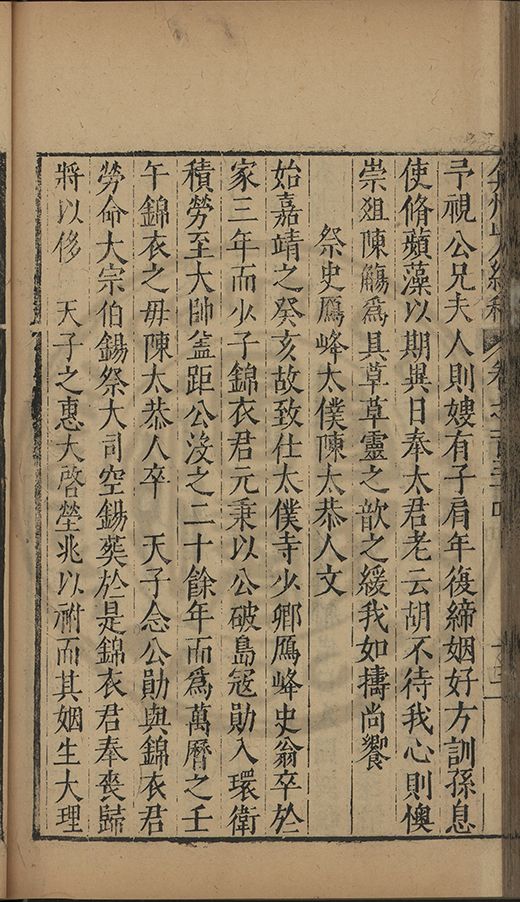 弇州山人續稿 卷之一百
予視公兄夫人則嫂有子肩年復締姻好方訓孫息
使脩蘋藻以期異日奉太君老云胡不待我心則懊
崇俎陳觴爲具草草靈之歆之緩我如擣尚饗
祭史鴈峰太僕陳太恭人文
始嘉靖之癸亥故致仕太僕寺少卿鴈峰史翁卒於
家三年而少子錦衣君元秉以公破島冦勛入環衛
積勞至大帥盖距公沒之二十餘年而爲萬曆之壬
午錦衣之毋陳太恭人卒 天子念公勛與錦衣君
勞命大宗伯錫祭大司空錫葬於是錦衣君奉喪歸
將以侈 天子之惠大啓塋兆以祔而其姻生大理